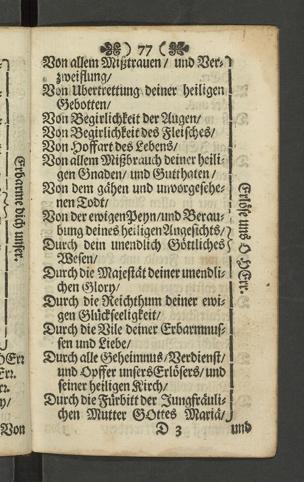 ) 77 (
Von allem Mißtrauen/ und Ver-
zweiflung/
Von Ubertrettung deiner heiligen
Gebotten/
Von Begirlichkeit der Augen/
Von Begirlichkeit des Fleisches/
Von Hoffart des Lebens/
Von allem Mißbrauch deiner heili-
gen Gnaden/ und Gutthaten/
Von dem gähen und unvorgesehe-
nen Todt/
Von der ewigen Peyn/ und Berau-
bung deines heiligen Angesichts/
Durch dein unendlich Göttliches
Wesen/
Durch die Majestät deiner unendli-
chen Glory/
Durch die Reichthum deiner ewi-
gen Glückseeligkeit/
Durch die Vile deiner Erbarmnuß-
sen und Liebe/
Durch alle Geheimnus/ Verdienst/
und Opffer unsers Erlösers/ und
seiner heiligen Kirch/
Durch die Fürbitt der Jungfräuli-
chen Mutter GOttes Mariä/
D 3 und
Erbarme dich unser.
Erlöse uns O HErr.
HErr
Von